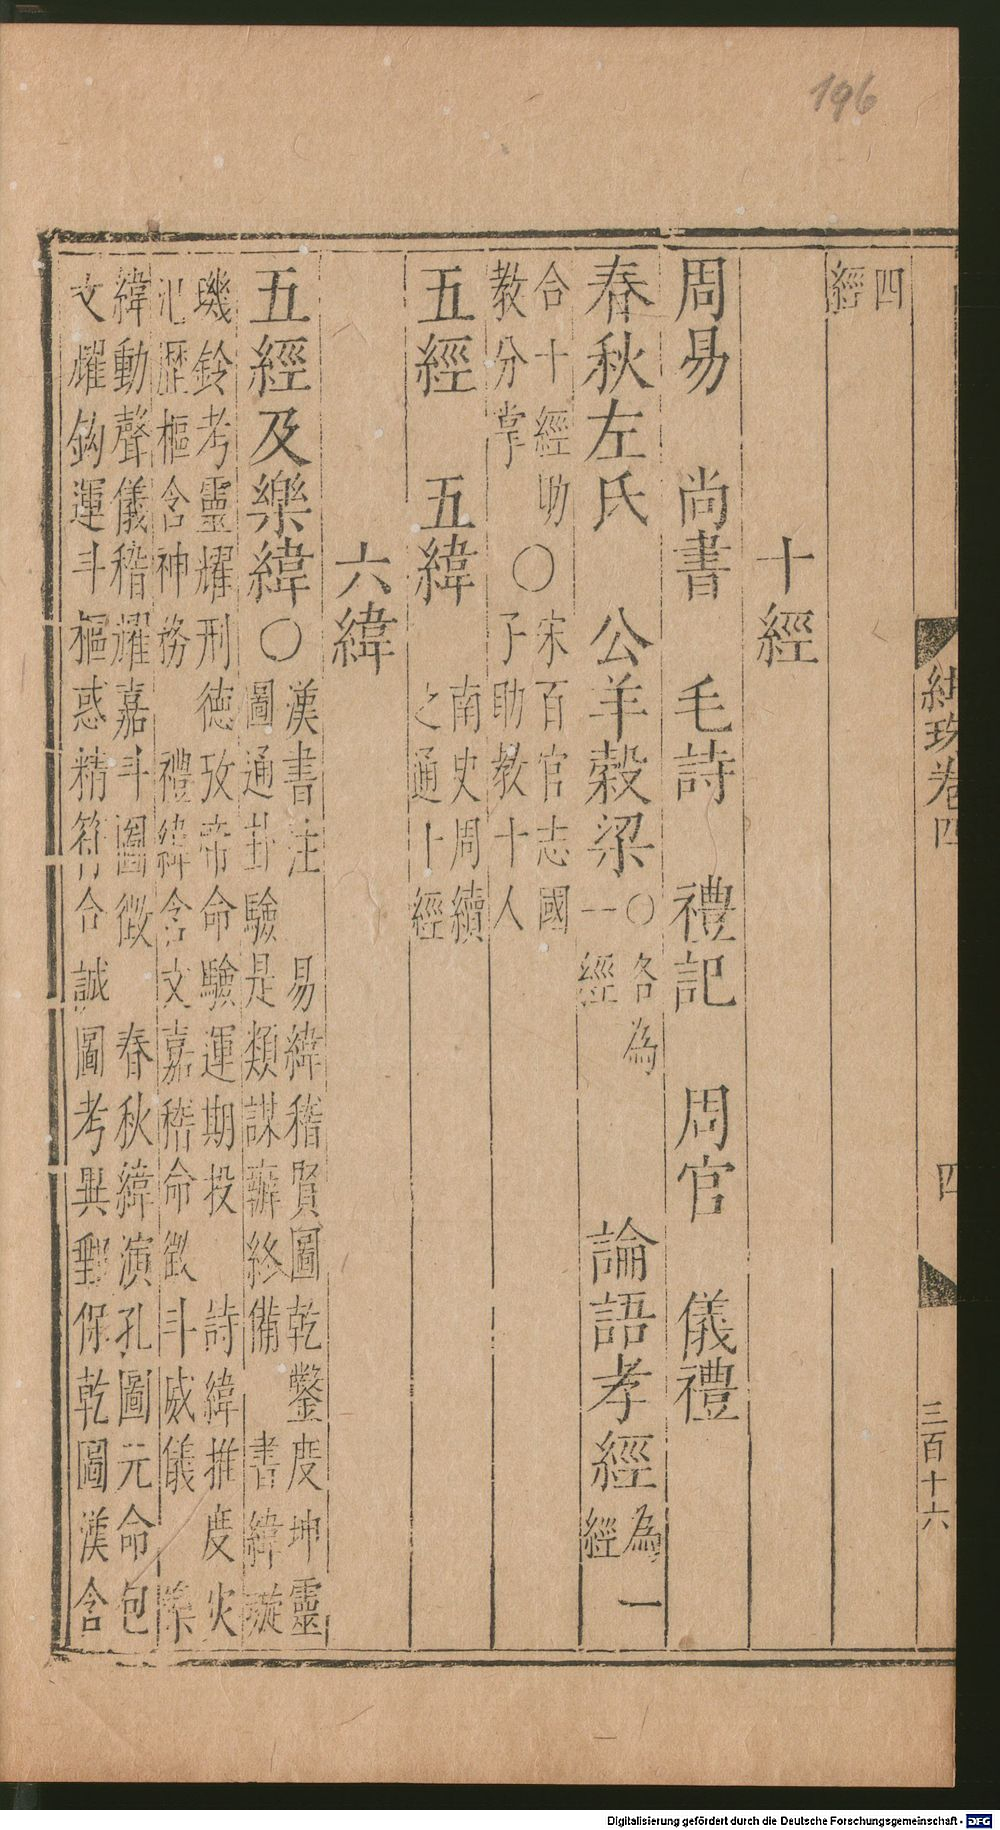 196
紺珠卷四
四
三百十六
四
經
十經
周易　尚書　毛詩　禮記　周官　儀禮
春秋左氏　公羊穀梁○各為
一經
論語孝經為一
經
合十經助○宋百官志國
教分掌　子助教十人
五經　五緯　南史周續
之通十經
六緯
五經及樂緯○漢書注　易緯稽賢圖乾鑿度坤靈
圖通卦驗是類謀辦終備　書緯璇
璣鈴考靈耀刑德攷帝命驗運期投　詩緯推度災
氾歷樞含神務　禮緯含文嘉稽命徵斗威儀　樂
緯動聲儀稽耀嘉斗圖徵　春秋緯演孔圖元命包
文耀鈎運斗樞惑精符合誠圖考異郵保乾圖漢含
Digitalisierung gefördert durch die Deutsche Forschungsgemeinschaft - DFG